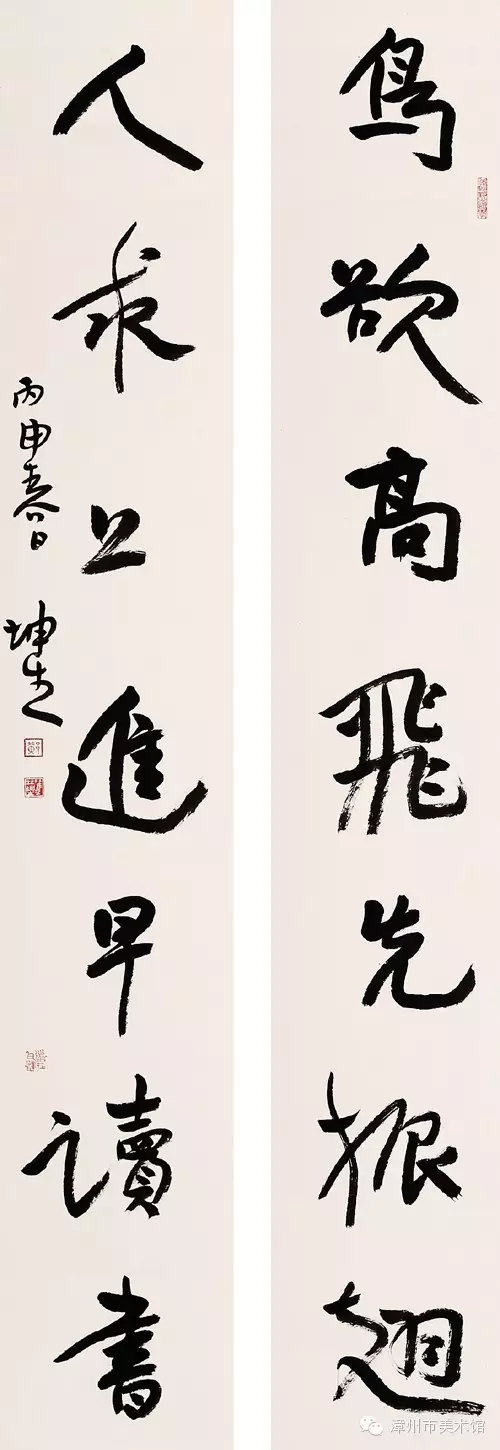 鳥欲高飛先振翅
人求上進早讀書
丙申春日 坤生
漳州市美术馆